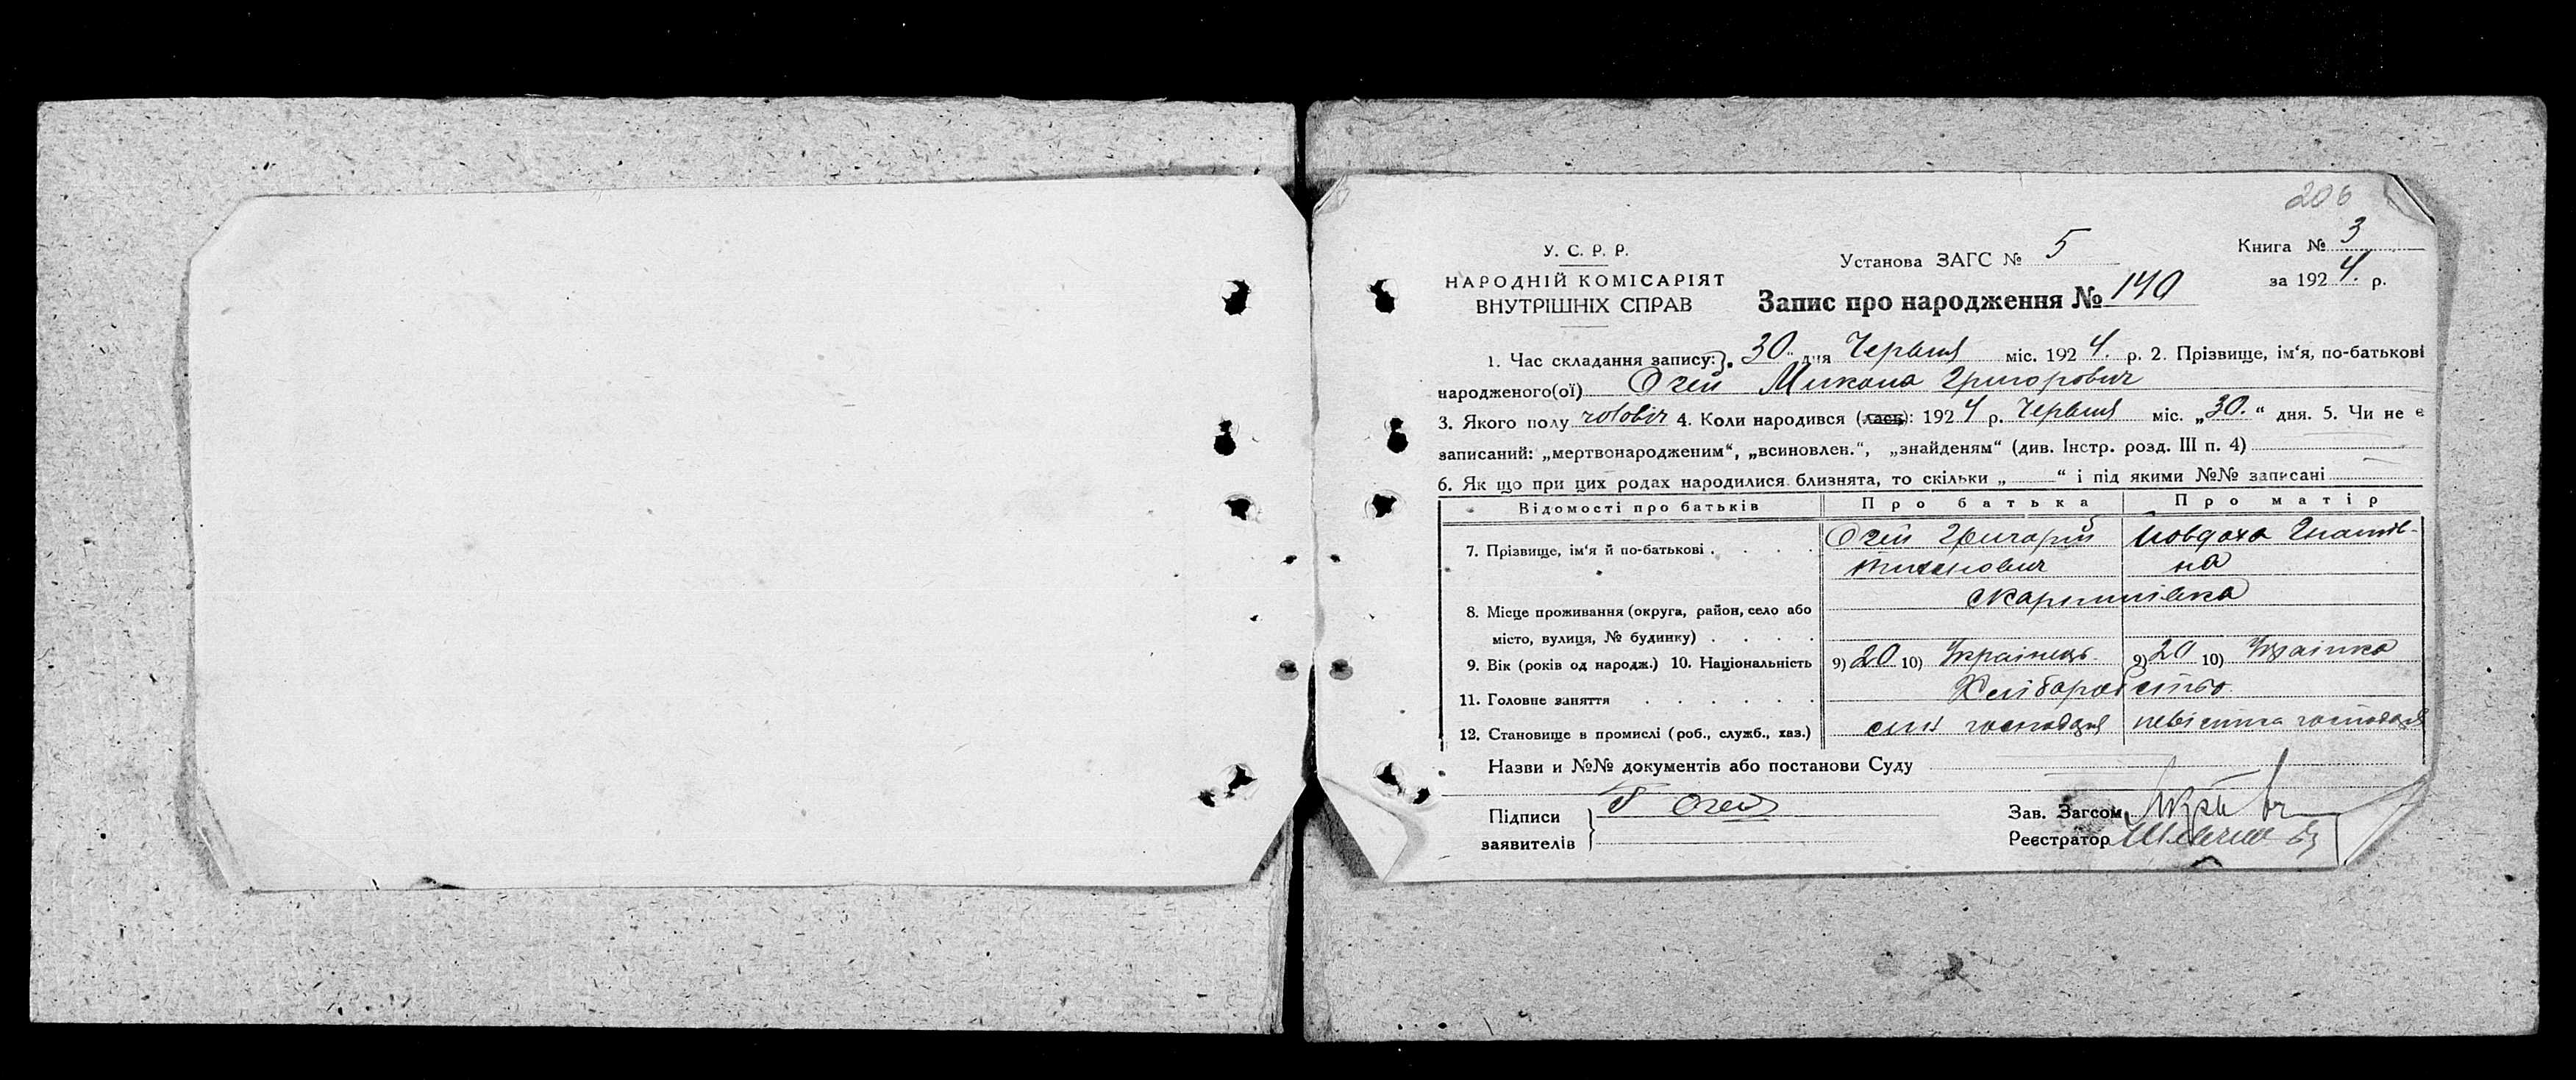 206
У. С. Р. Р.
НАРОДНІЙ КОМІСАРІЯТ
ВНУТРІШНІХ СПРАВ
Установа ЗАГС № 5
Книга № 3
за 1924. р.
Запис про народження № 140
1. Час складання запису: 30 " дня Червня міс. 1924. р. 2. Прізвище, ім‘я, по-батькові
народженого(ої) Огей Микола Григорович
3. Якого полу чоловіч 4. Коли народився (лась): 1924 р. Червня міс. „30.“ дня. 5. Чи не є
записаний: „мертвонародженим“, „всиновлен.“, „знайденям“ (див. Інстр. розд. III п. 4)
6. Як що при цих родах народилися близнята, то скільки „ “ і під якими №№ записані
Відомості про батьків Про батька Про матір
7. Прізвище, ім‘я й по-батькові Огей Григорій Иовдоха Гнатів-
на
8. Місце проживання (округа, район, село або
місто, вулиця, № будинку)
9. Вік (років од народж.) 10. Національність 9) 20 10) Украінець 9) 20 10) Украінка
11. Головне заняття Хліборобство
12. Становище в промислі (роб., служб., хаз.) син господаря невістка господаря
Назви и №№ документів або постанови Суду
Підписи
заявителів
Г Огей
Зав. Загсом
Реєстратор